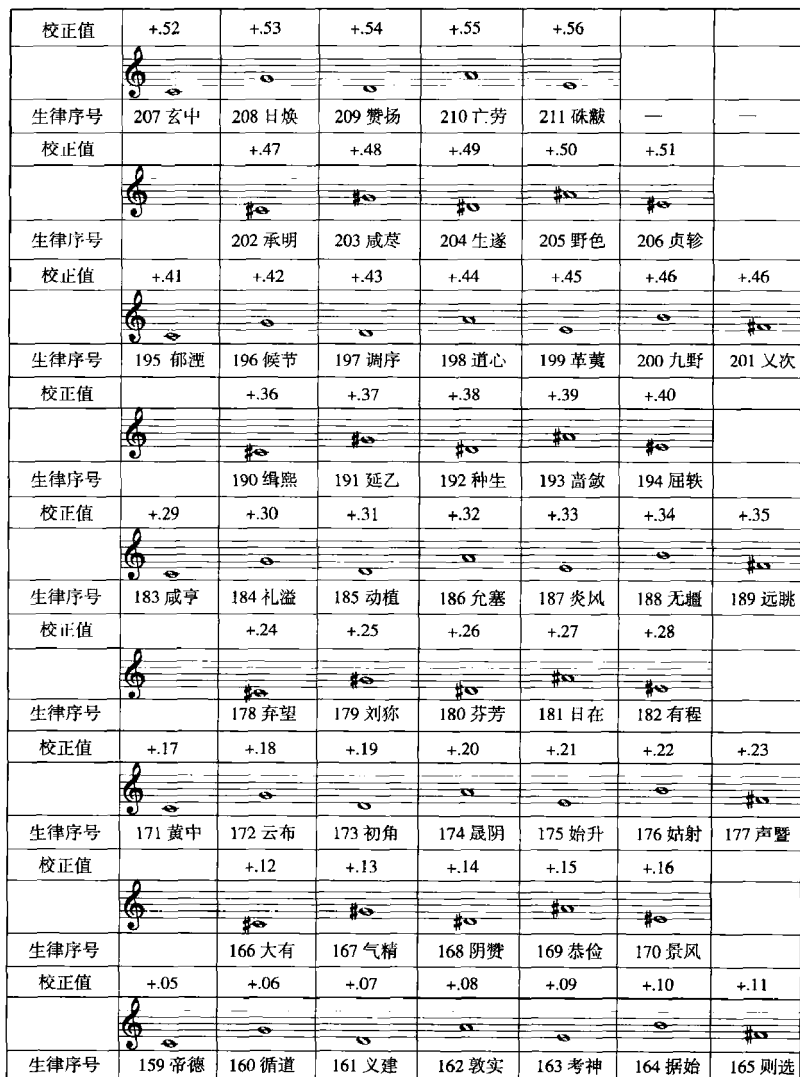 校正值 +.52 +.53 +.54 +.55 +.56
生律序号 207 玄中 208 日焕 209 赞扬 210 亡劳 211 硃黻 — —
校正值 +.47 +.48 +.49 +.50 +.51
生律序号 202 承明 203 咸荩 204 生遂 205 野色 206 贞轸
校正值 +.41 +.42 +.43 +.44 +.45 +.46 +.46
生律序号 195 郁湮 196 候节 197 调序 198 道心 199 革荑 200 九野 201 义次
校正值 +.36 +.37 +.38 +.39 +.40
生律序号 190 缉熙 191 延乙 192 种生 193 啬敛 194 屈轶
校正值 +.29 +.30 +.31 +.32 +.33 +.34 +.35
生律序号 183 咸亨 184 礼溢 185 动植 186 允塞 187 炎风 188 无疆 189 远眺
校正值 +.24 +.25 +.26 +.27 +.28
生律序号 178 弃望 179 刘狝 180 芬芳 181 日在 182 有程
校正值 +.17 +.18 +.19 +.20 +.21 +.22 +.23
生律序号 171 黄中 172 云布 173 初角 174 晟阴 175 始升 176 姑射 177 声暨
校正值 +.12 +.13 +.14 +.15 +.16
生律序号 166 大有 167 气精 168 阴赞 169 恭俭 170 景风
校正值 +.05 +.06 +.07 +.08 +.09 +.10 +.11
生律序号 159 帝德 160 循道 161 义建 162 敦实 163 考神 164 据始 165 则选